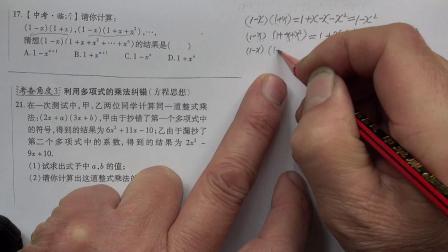 17.【中考·临沂】请你计算:
(1-x)(1+x),(1-x)(1+x+x²),…,
猜想(1-x)(1+x+x²+…+xⁿ)的结果是( )
A. 1-xⁿ⁺¹ B. 1+xⁿ⁺¹ C. 1-xⁿ D. 1+xⁿ
考查角度3 利用多项式的乘法纠错(方程思想)
21. 在一次测试中,甲、乙两位同学计算同一道整式乘
法:(2x+a)(3x+b),甲由于抄错了第一个多项式中
的符号,得到的结果为6x²+11x-10;乙由于漏抄了
第二个多项式中的系数,得到的结果为2x²-
9x+10.
(1)试求出式子中a,b的值;
(2)请你计算出这道整式乘法的
(1-x)(1+x)=1+x-x-x²=1-x²
(1-x)(1+x+x²)=1+
(1-x)(1